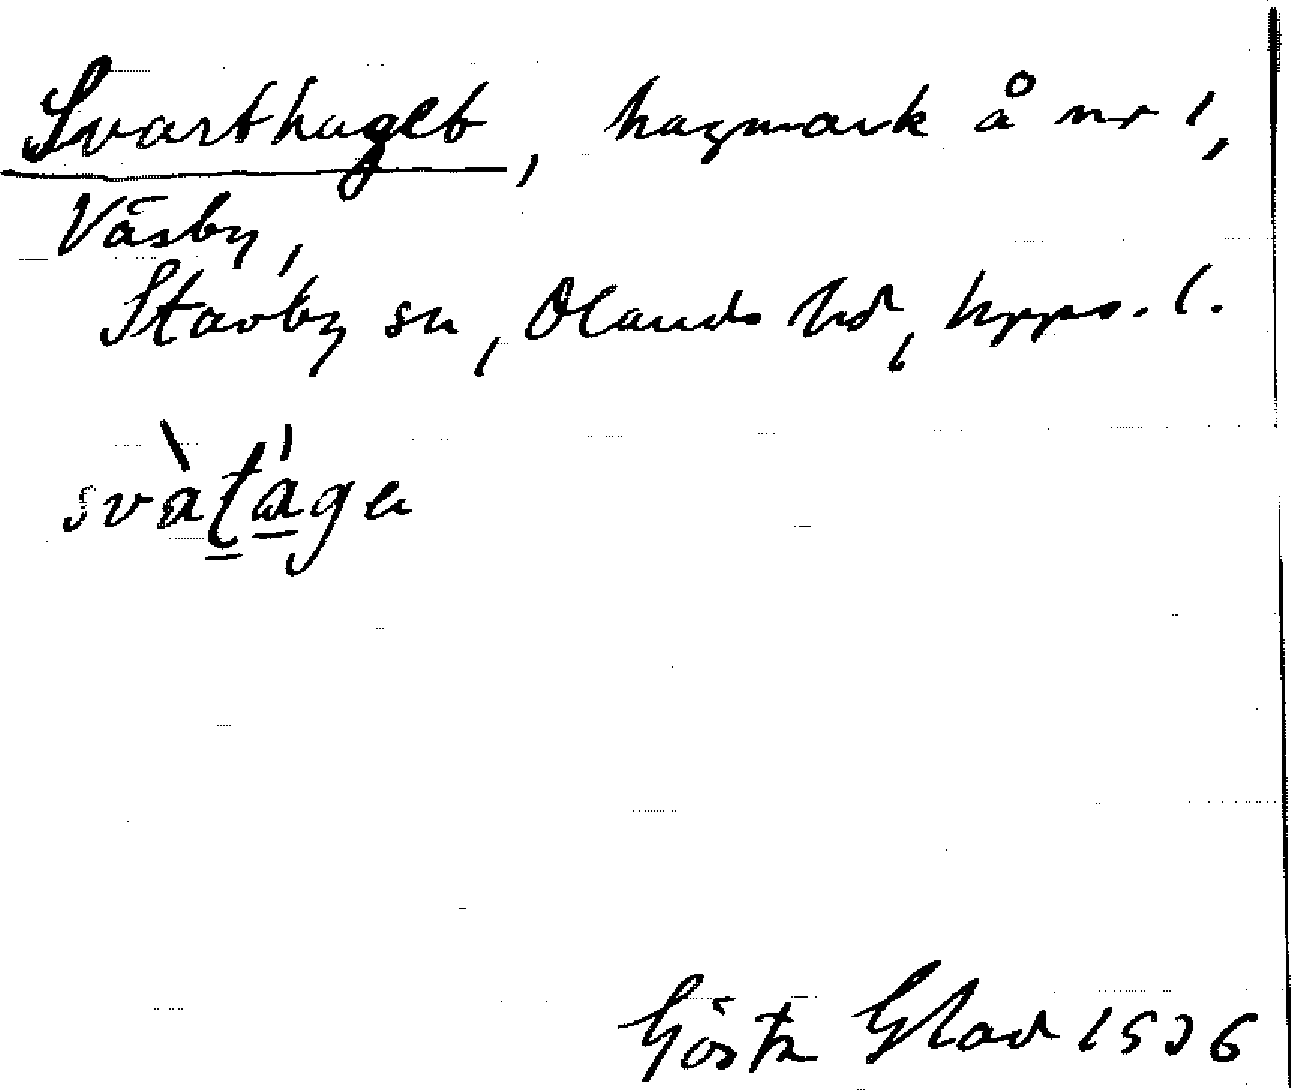 Svarthaget, hagmark å nr 1,
Väsby,
Stavby sn, Olands hd, Upps. l.
svàt̲a̲ge
Gösta Glad 1936